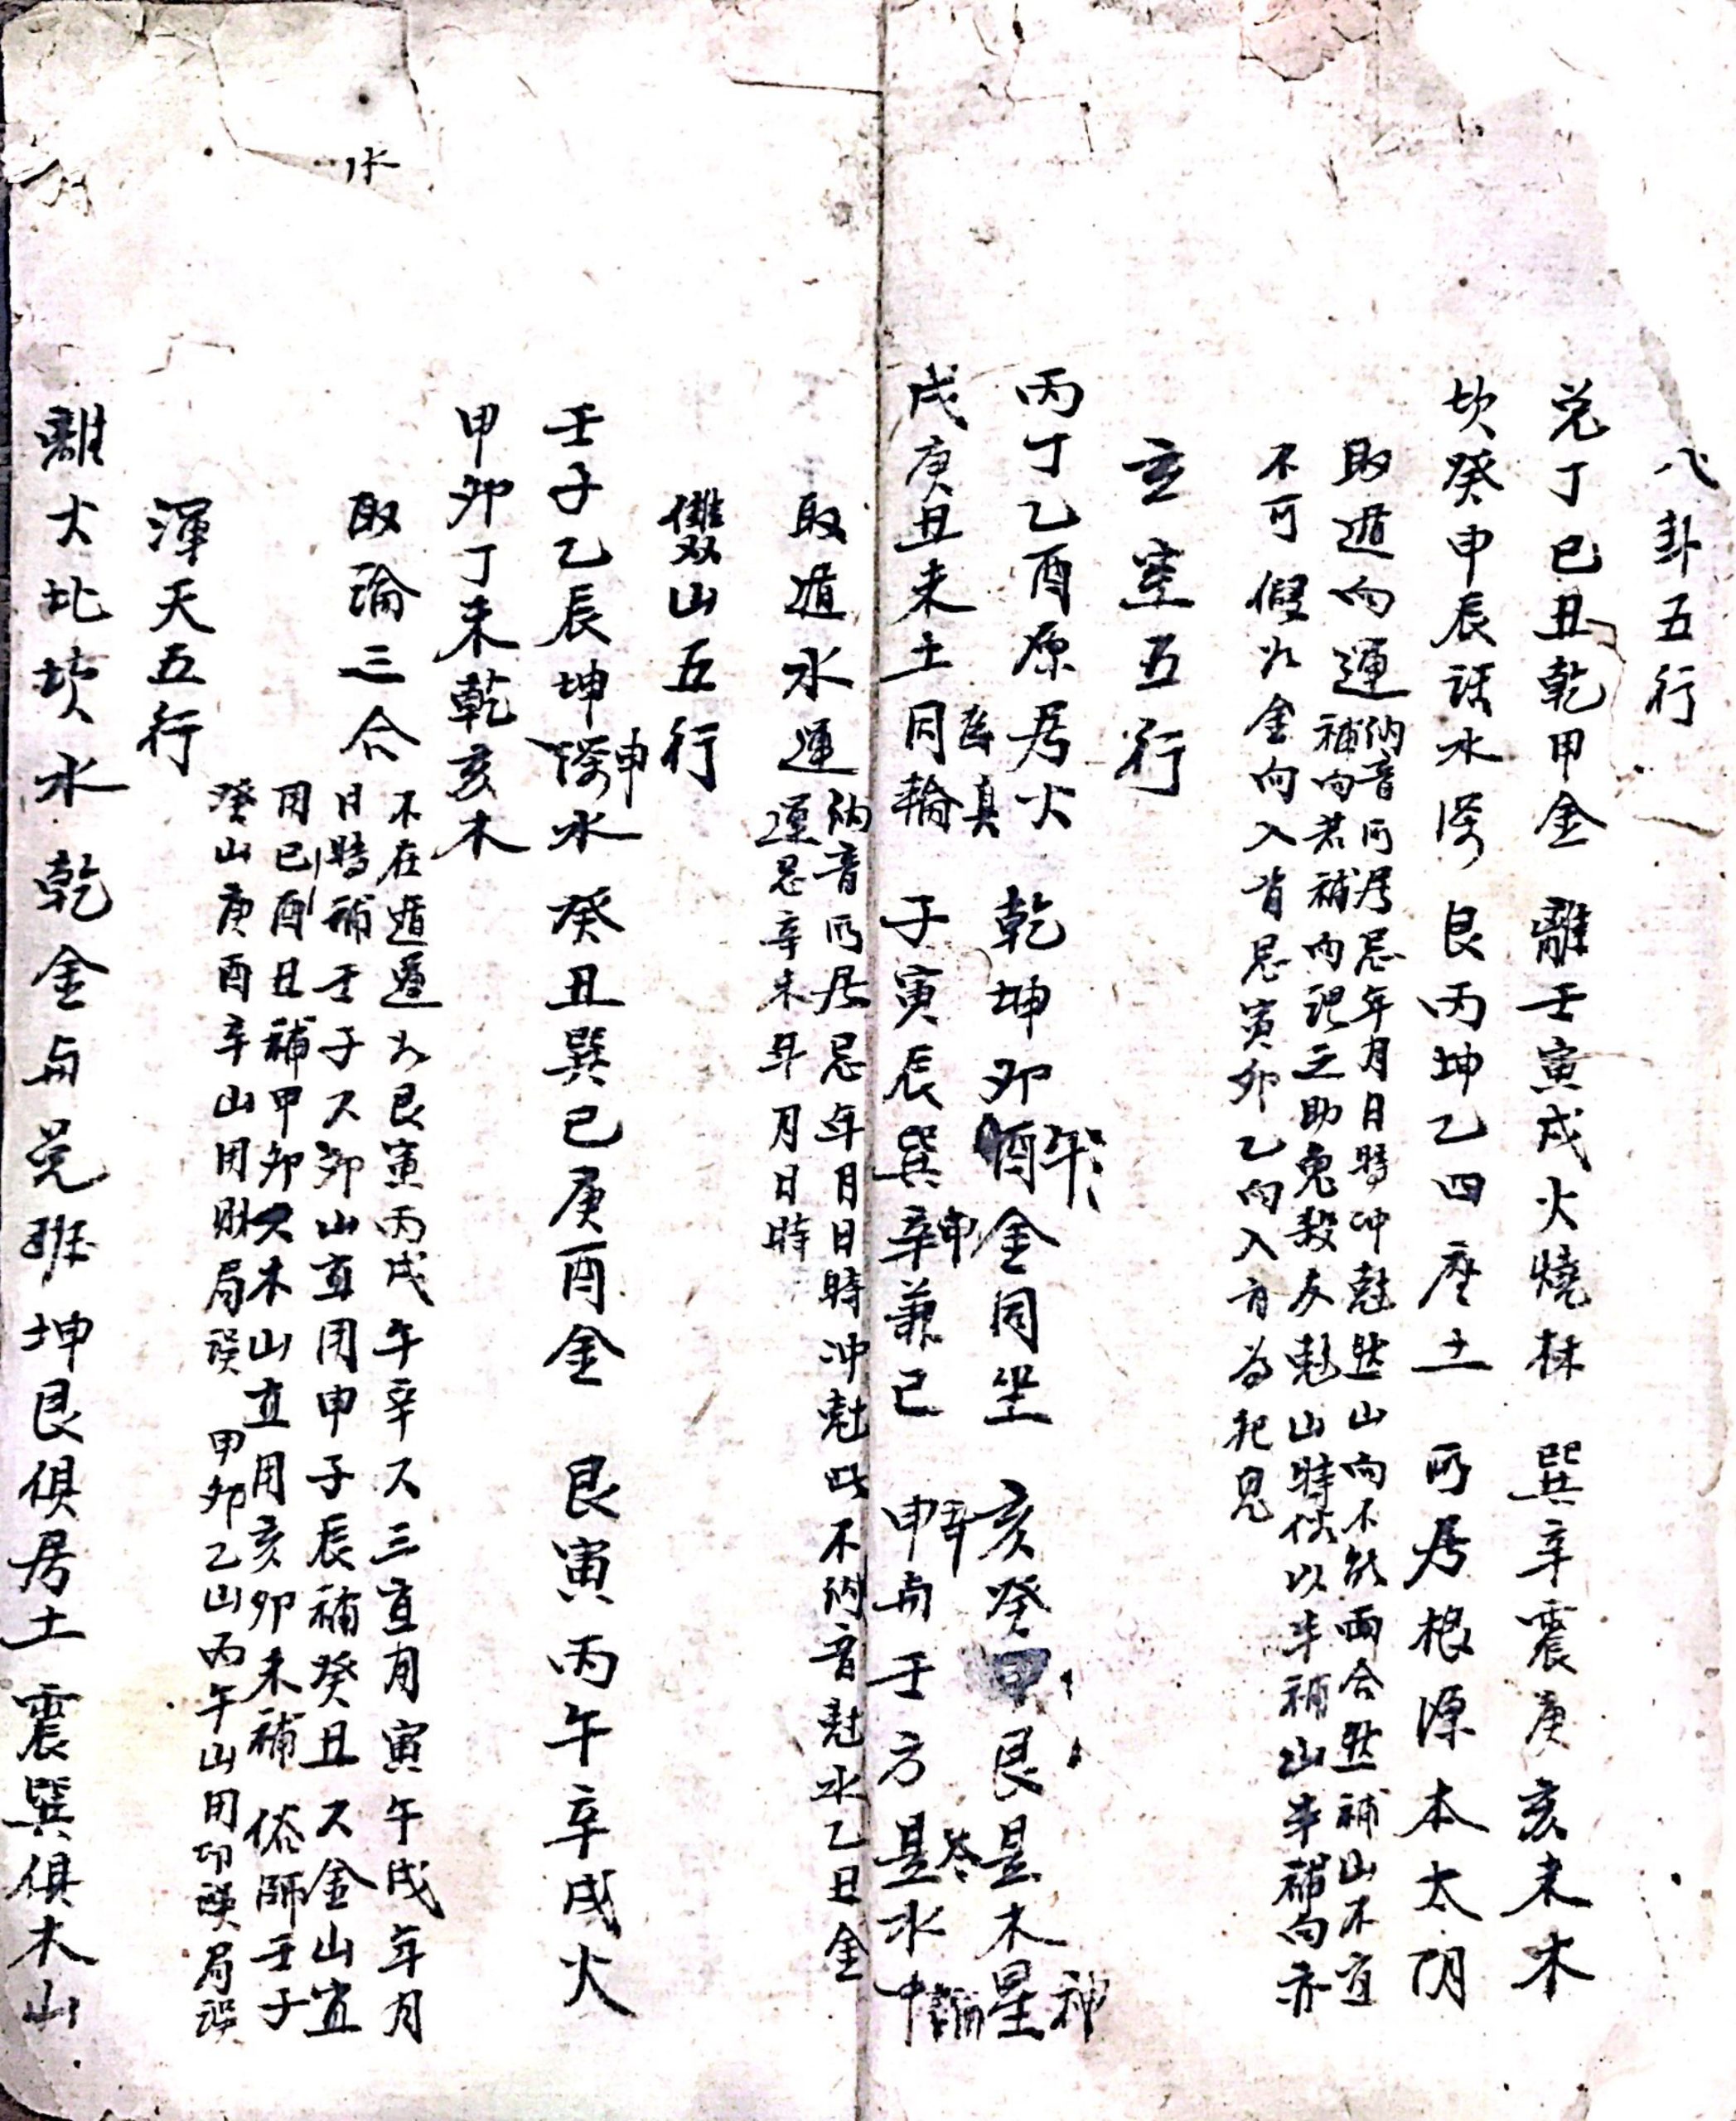 八卦五行
兌丁巳丑乾甲金 離壬寅戌火燒林 巽辛震庚亥未木
坎癸申辰話水深 艮丙坤乙四座土 所居根源本太阴
取遁向運 納音所居忌年月日時冲尅然山向不能兩合然補山不宜
補向若補向記之助鬼殺反尅山特伏以半補山半補向亦
不可假如金向入首忌寅卯乙向入首為犯鬼
玄空五行
丙丁乙酉原居火 乾坤卯酉午金同坐 亥癸甲艮是木星神
戌庚丑未土同輪 庫真 子寅辰巽辛申兼已 申辛与壬方是水中
取遁水運 納音所居忌年月日時冲尅此不納音尅水乙丑金
運忌辛未年月日時
雙山五行
壬子乙辰坤申水 癸丑巽巳庚酉金 艮寅丙午辛戌火
甲卯丁未乾亥木
取論三合 不在遁運如艮寅丙戌午辛又三宜用寅午戌年月
日時補壬子又卯山宜用申子辰補癸丑又金山宜
用巳酉丑補甲卯又木山宜用亥卯未補 俗師壬子
癸山庚酉辛山用財局誤 甲卯乙山丙午山用印誤局誤
渾天五行
離火北坎水乾金与兌班坤艮俱居土震巽俱木山
水